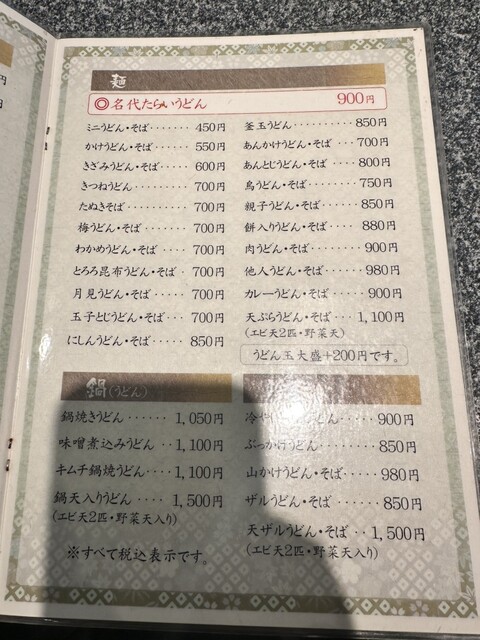 麺
◎名代たらいうどん 900円
ミニうどん・そば・・・・・・・ 450円
かけうどん・そば・・・・・・ 550円
きざみうどん・そば・・・・・ 600円
きつねうどん・・・・・・・・・ 700円
たぬきそば・・・・・・・・・・ 700円
梅うどん・そば・・・・・・・ 700円
わかめうどん・そば・・・・ 700円
とろろ昆布うどん・そば・・ 700円
月見うどん・そば・・・・・ 700円
玉子とじうどん・そば・・・ 700円
にしんうどん・そば・・・・・ 850円
釜玉うどん・・・・・・・・・ 850円
あんかけうどん・そば・・・ 700円
あんとじうどん・そば・・・・ 800円
鳥うどん・そば・・・・・・・ 750円
親子うどん・そば・・・・・・ 850円
餅入りうどん・そば・・・・ 880円
肉うどん・そば・・・・・・・ 900円
他人うどん・そば・・・・・・ 980円
カレーうどん・そば・・・・ 900円
天ぷらうどん・そば・・・ 1,100円
(エビ天2匹・野菜天)
うどん玉大盛+200円です。
鍋(うどん)
鍋焼きうどん・・・・・・ 1,050円
味噌煮込みうどん・・ 1,100円
キムチ鍋焼うどん・・・ 1,100円
鍋天入りうどん・・・・ 1,500円
(エビ天2匹・野菜天入り)
※すべて税込表示です。
冷や うどん・・・・ 900円
ぶっかけうどん・・・・・・・ 850円
山かけうどん・そば・・・・ 980円
ザルうどん・そば・・・・・ 850円
天ザルうどん・そば・・ 1,500円
(エビ天2匹・野菜天入り)